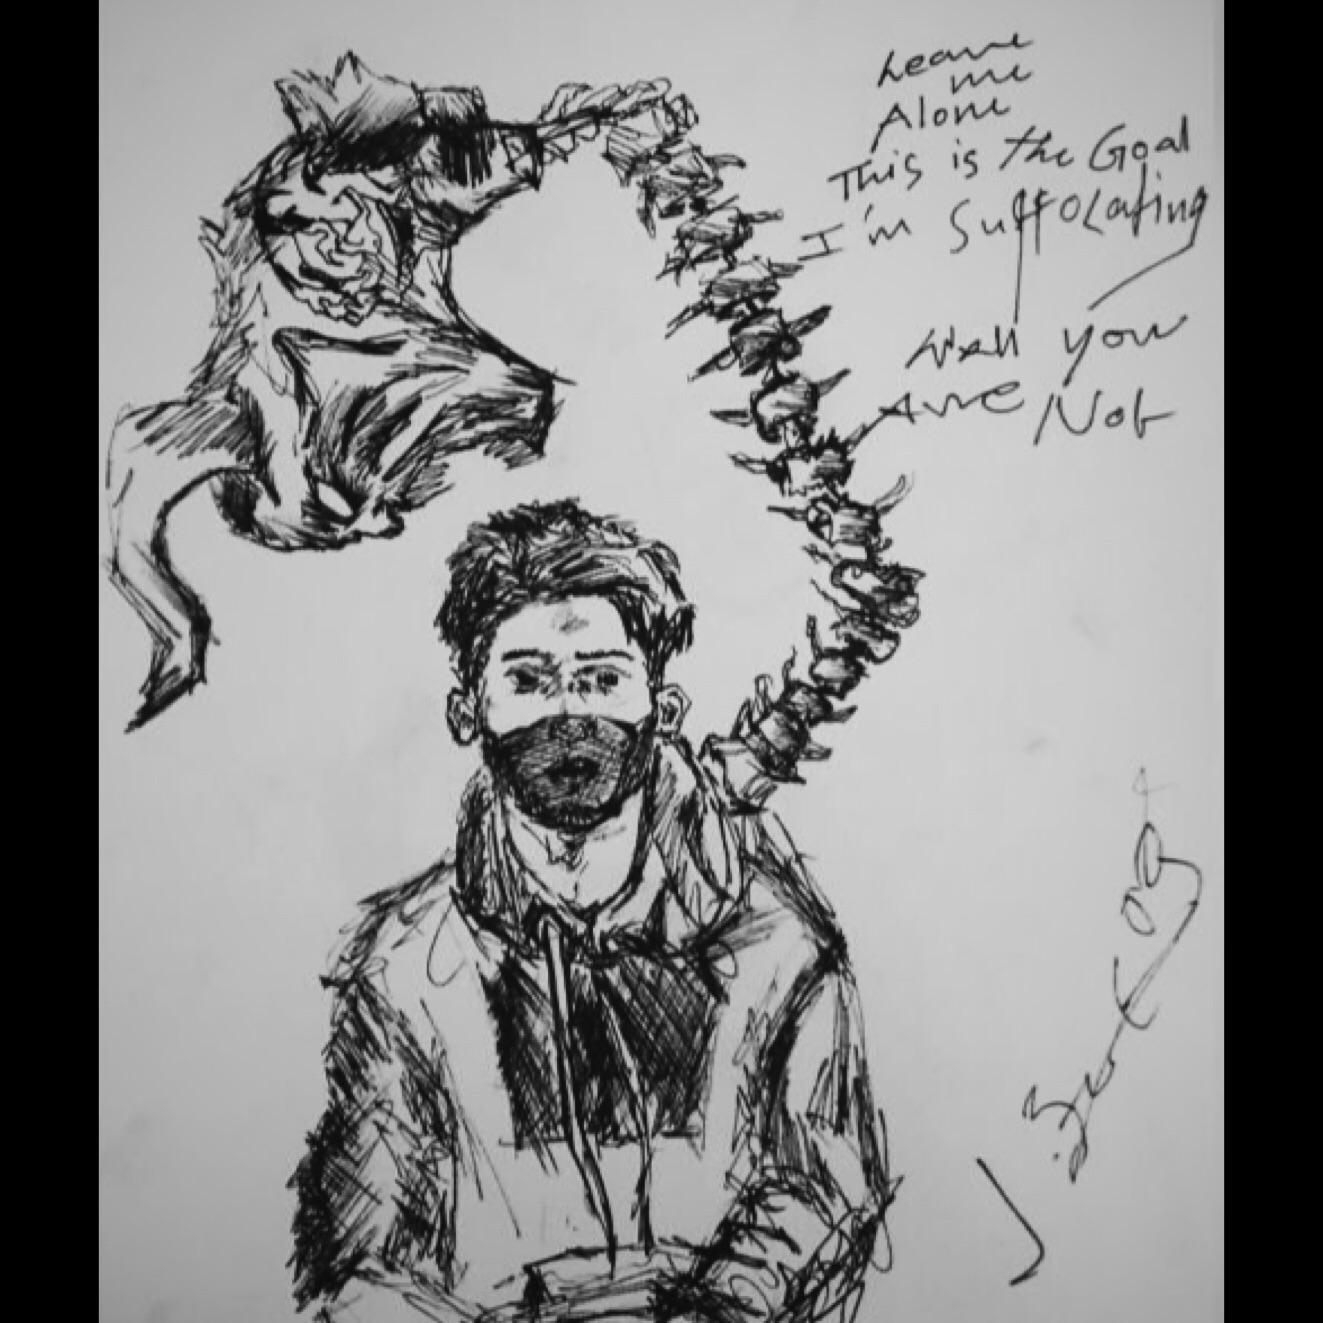 Leave
me
Alone
This is the Goal
I'm Suffocating
Well you
Are Not